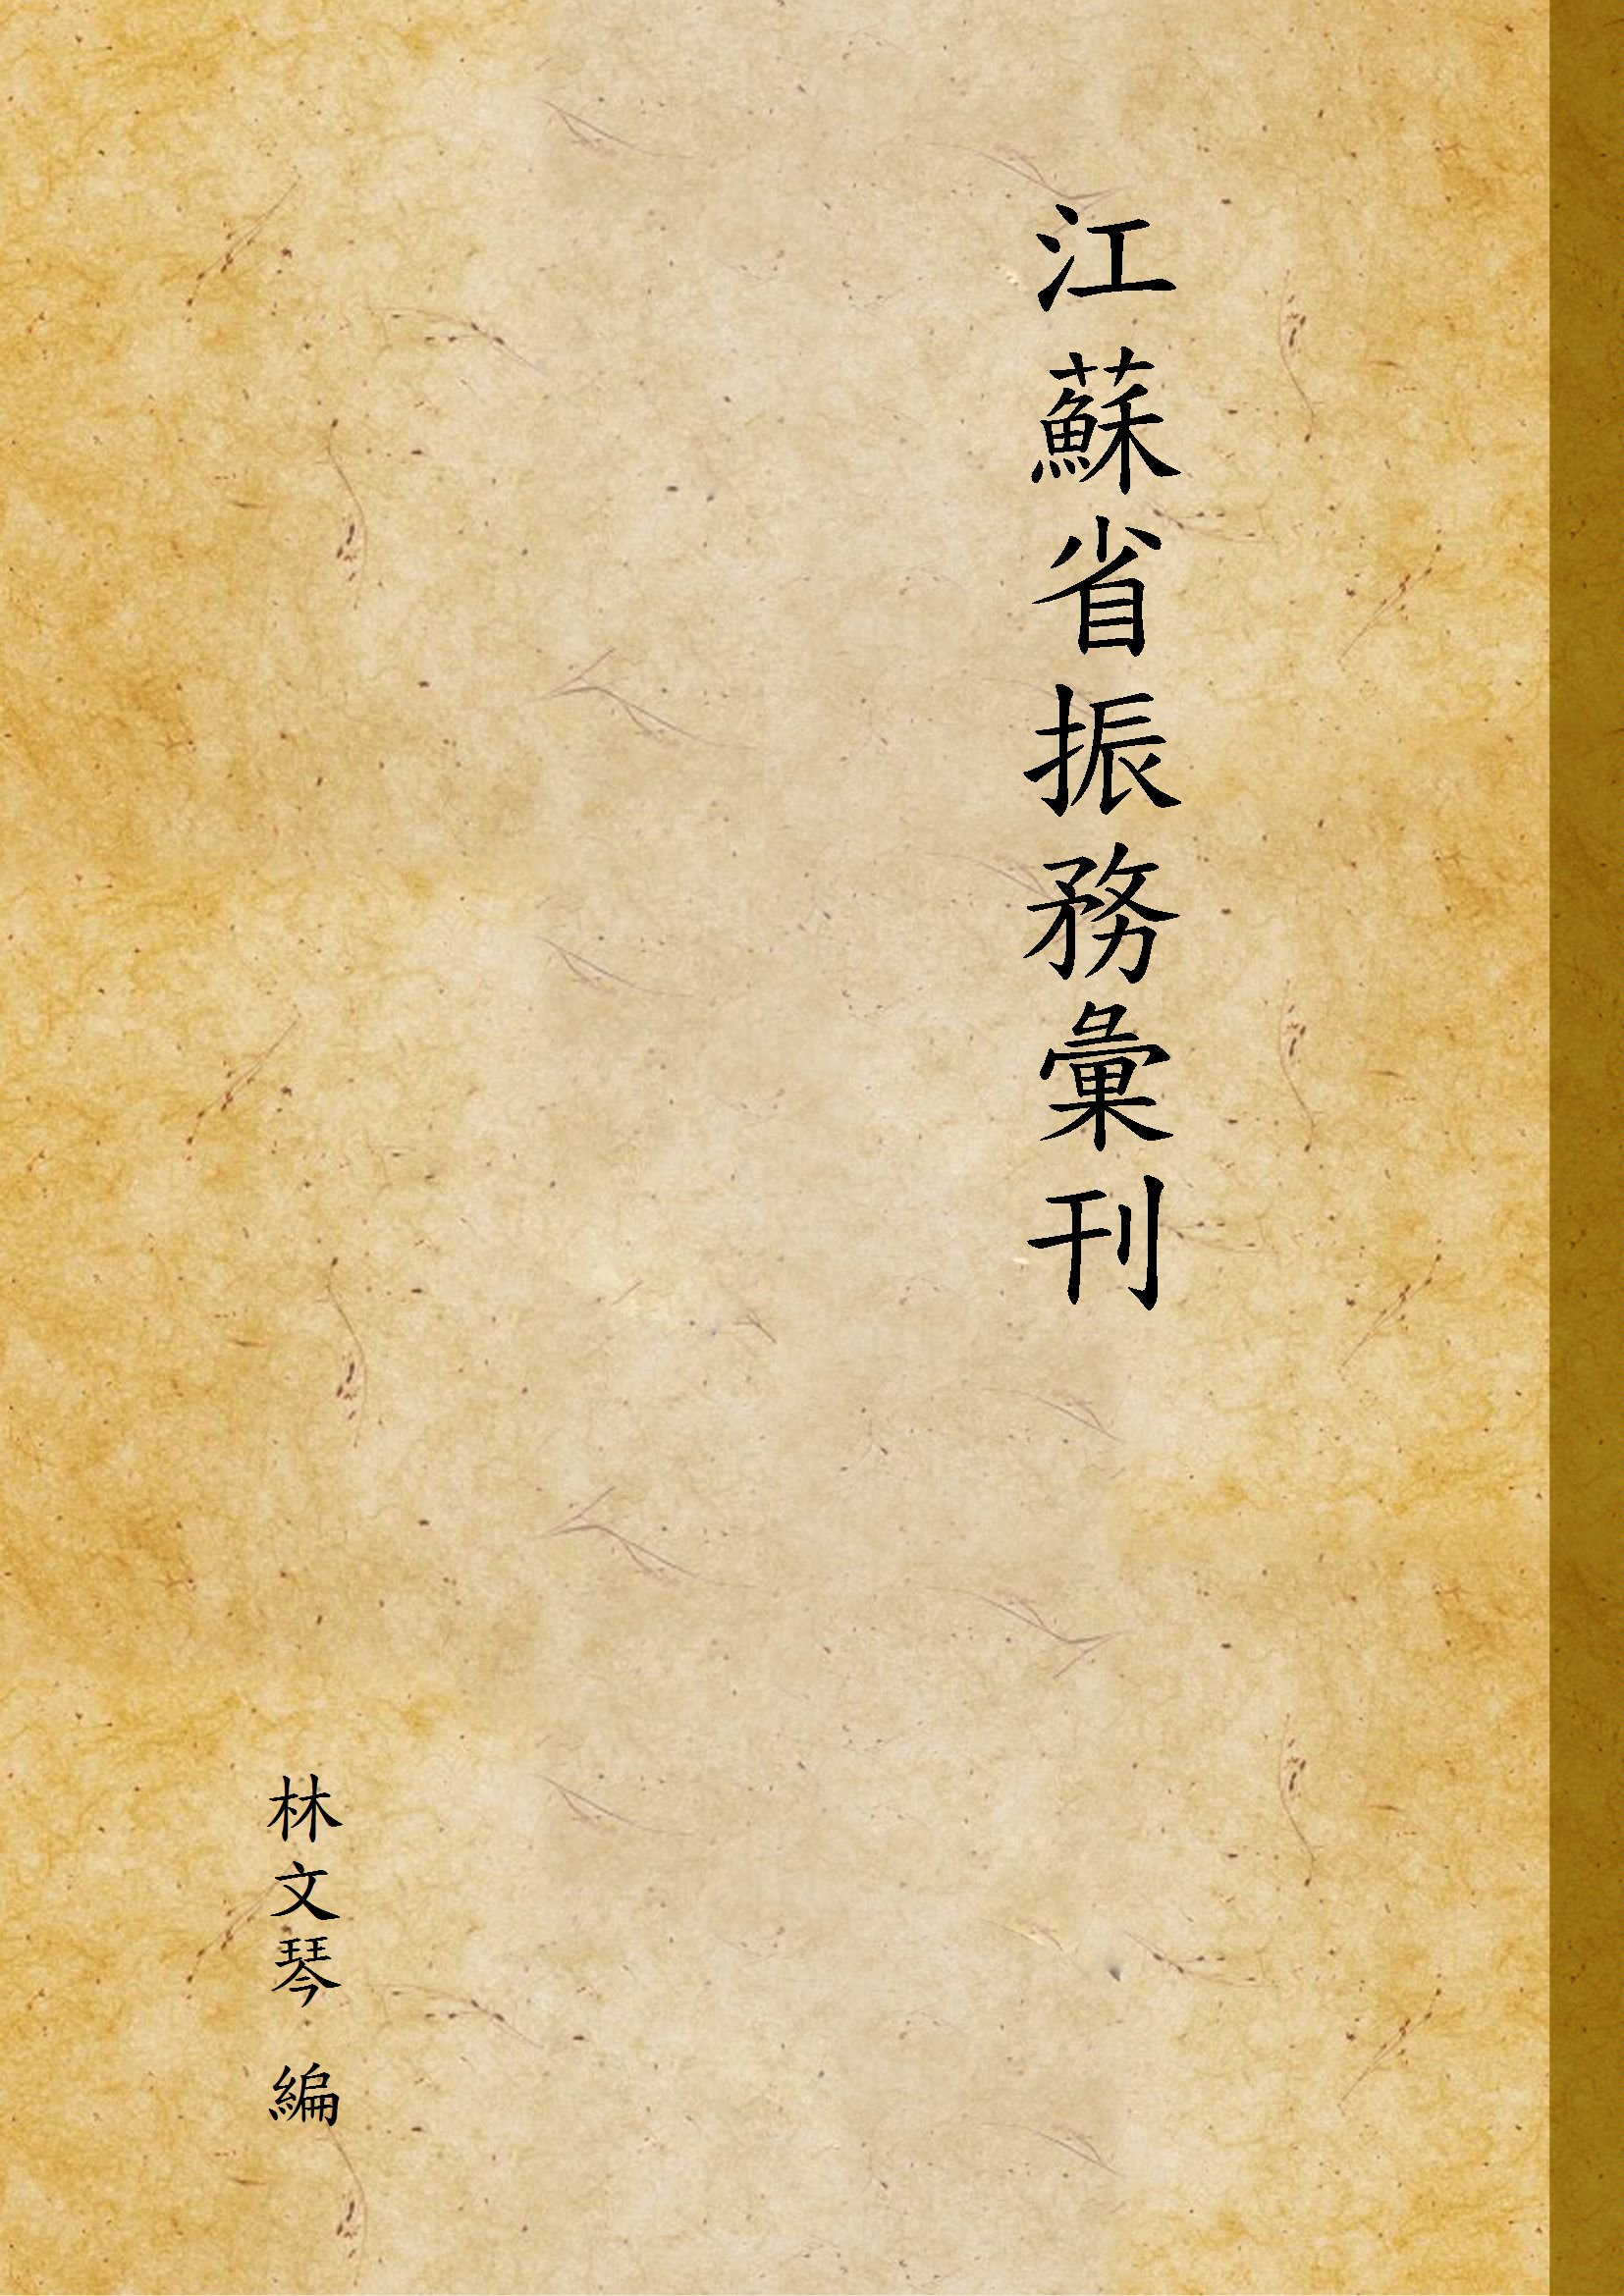 江蘇省振務彙刊
林文琴 編